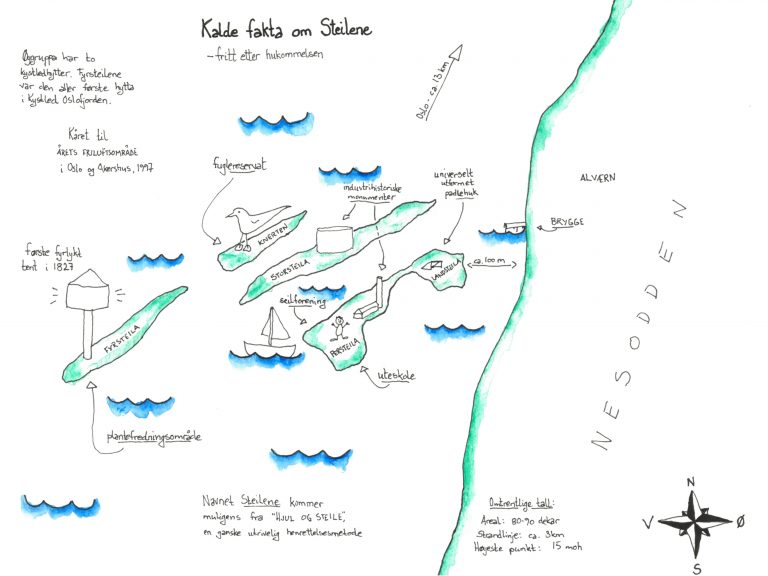 Kalde fakta om Steilene
- fritt etter hukommelsen
Øygruppa har to
kystledhytter. Fyrsteilene
var den aller første hytta
i Kystled Oslofjorden.
Kåret til
ÅRETS FRILUFTSOMRÅDE
i Oslo og Akershus, 1997
Oslo - ca. 13 km
fuglereservat
industrihistoriske
monumenter
universelt
utformet
padlehuk
ALVÆRN
BRYGGE
ca. 100 m
NESODDEN
KNERTEN
STORSTEILA
LANDSTEILA
PERSTEILA
FYRSTEILA
første fyrlykt
tent i 1827
seilforening
uteskole
plantefredningsområde
Navnet Steilene kommer
muligens fra "HJUL OG STEILE",
en ganske utrivelig henrettelsesmetode
Omtrentlige tall:
Areal: 80-90 dekar
Strandlinje: ca. 3km
Høyeste punkt: 15 moh
N
V
Ø
S